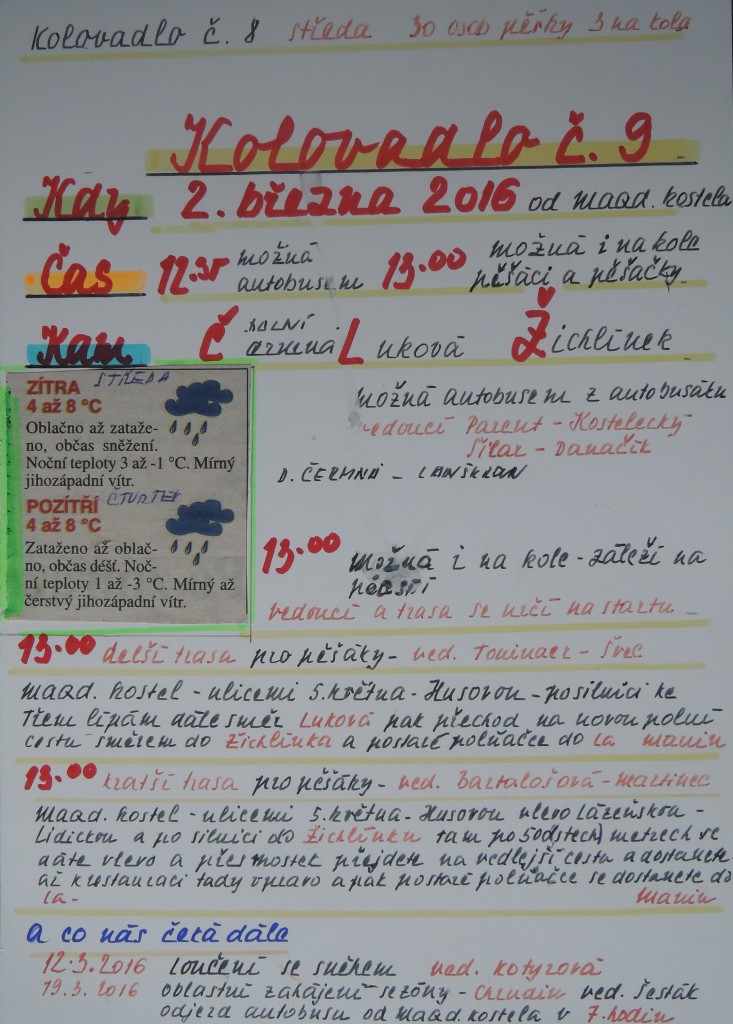 Kolovadlo č. 8 středa 30 osob pěšky 3 na kola
Kolovadlo č. 9
Kdy 2. března 2016 od maad. kostela
Čas 12.35 možná autobusem 13.00 možná i na kole pěšáci a pěšačky
Kam Č Dolní ermná Luková Žichlínek
ZÍTRA STŘEDA
4 až 8 °C
Oblačno až zataže-
no, občas sněžení.
Noční teploty 3 až -1 °C. Mírný
jihozápadní vítr.
POZÍTŘÍ ČTVRTEK
4 až 8 °C
Zataženo až oblač-
no, občas déšť. Noč-
ní teploty 1 až -3 °C. Mírný až
čerstvý jihozápadní vítr.
možná autobusem z autobusáku
vedoucí Parent - Kostelecký
Šilar - Danačík
D. ČERMNÁ - LANŠKROUN
13.00 možná i na kole - záleží na
počasí
vedoucí a trasa se určí na startu
13.00 delší trasa pro pěšáky - ved. - Švec
maad. kostel - ulicemi 5. května - Husovou - po silnici ke
Třem lípám dále směr Luková pak přechod na novou polní
cestu směrem do Žichlínka a po staré polňačce do La manin
13.00 kratší trasa pro pěšáky - ved. Bartalošová - Martinec
maad. kostel - ulicemi 5. května - Husovou vlevo Lázeňskou -
Lidickou a po silnici do Žichlínku tam po 50 (dstech) metrech se
dáte vlevo a přes mostek přejdete na vedlejší cestu a dostanete
až k restauraci tady vpravo a pák po staré polňačce se dostanete do
La- manin
A co nás čeká dále
12.3.2016 Loučení se sněhem ved. Kotyzová
19.3.2016 oblastní zahájení sezóny - Chrudim ved. Šesták
odjezd autobusu od maad. kostela v 7. hodin